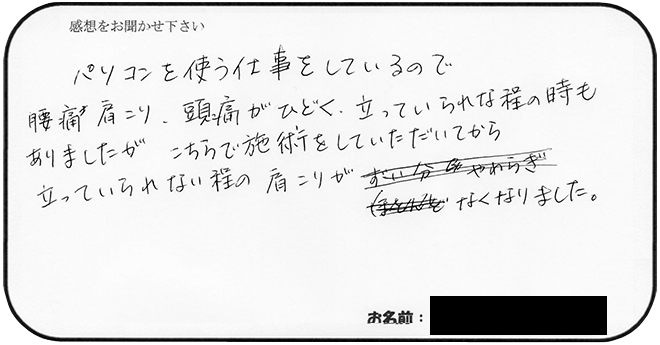 感想をお聞かせ下さい
パソコンを使う仕事をしているので
腰痛、肩こり、頭痛がひどく、立っていられな程の時も
ありましたが こちらで施術をしていただいてから
立っていられない程の 肩こりが ずい分 やわらぎ
なくなりました。
お名前：